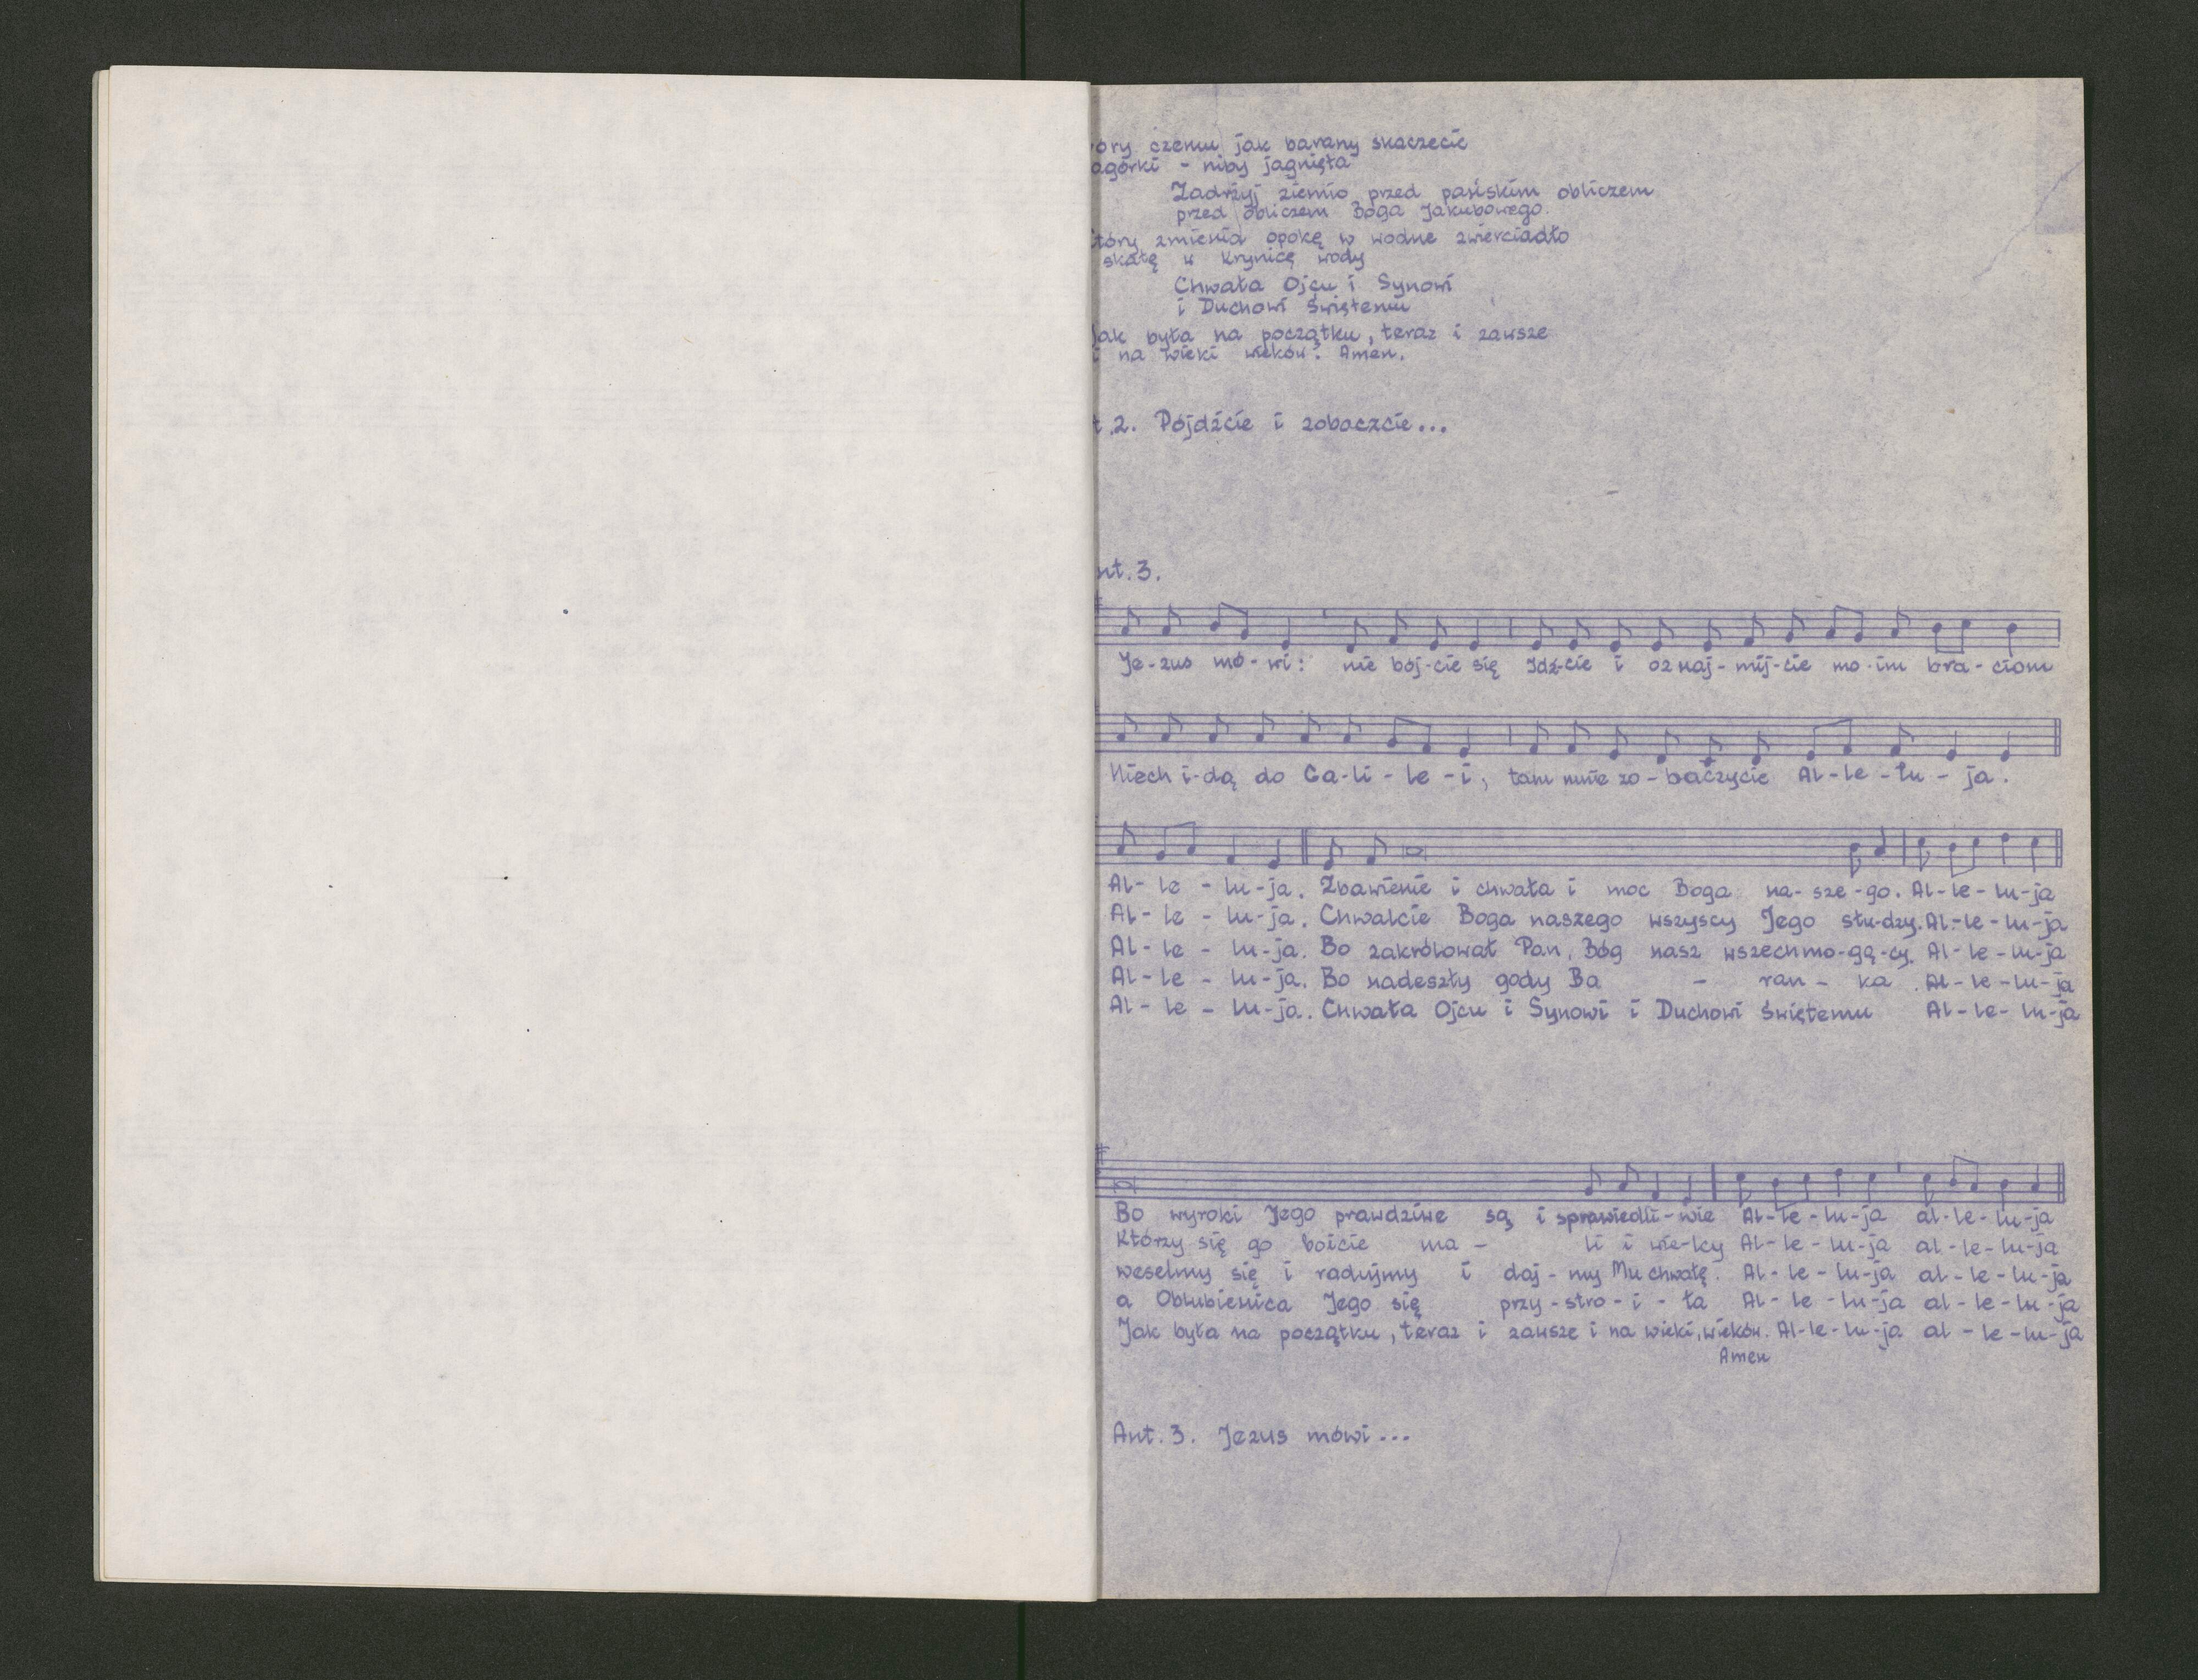 óry czemu jak barany skaczecie
agórki - niby jagnięta
Zadrżyj ziemio przed pańskim obliczem
przed obliczem Boga Jakubowego.
tóry zmienia opokę w wodne zwierciadło
skałę w krynicę wody
Chwała Ojcu i Synowi
i Duchowi Świętemu
Jak była na początku, teraz i zawsze
i na wieki wieków. Amen.
t.2. Pójdźcie i zobaczcie...
nt. 3.
Je-zus mó-wi: nie bój-cie się Idź-cie i oznaj-mij-cie mo-im bra-ciom
Niech i-dą do Ga-li-le-i, tam mnie zo-baczycie Al-le-lu-ja.
Al-le-lu-ja. Zbawienie i chwała i moc Boga na-sze-go. Al-le-lu-ja
Al-le-lu-ja. Chwalcie Boga naszego wszyscy Jego słu-dzy. Al-le-lu-ja
Al-le-lu-ja. Bo zakrólował Pan, Bóg nasz wszechmo-gą-cy. Al-le-lu-ja
Al-le-lu-ja. Bo nadeszły gody Ba - ran-ka. Al-le-lu-ja
Al-le-lu-ja. Chwała Ojcu i Synowi i Duchowi Świętemu Al-le-lu-ja
Bo wyroki Jego prawdziwe są i sprawiedli-wie Al-le-lu-ja al-le-lu-ja
Którzy się go boicie ma- li i wie-lcy Al-le-lu-ja al-le-lu-ja
weselmy się i radujmy i daj-my Mu chwałę. Al-le-lu-ja al-le-lu-ja
a Oblubienica Jego się przy-stro-i-ła Al-le-lu-ja al-le-lu-ja
Jak była na początku, teraz i zawsze i na wieki, wieków. Al-le-lu-ja al-le-lu-ja
Amen
Ant. 3. Jezus mówi...